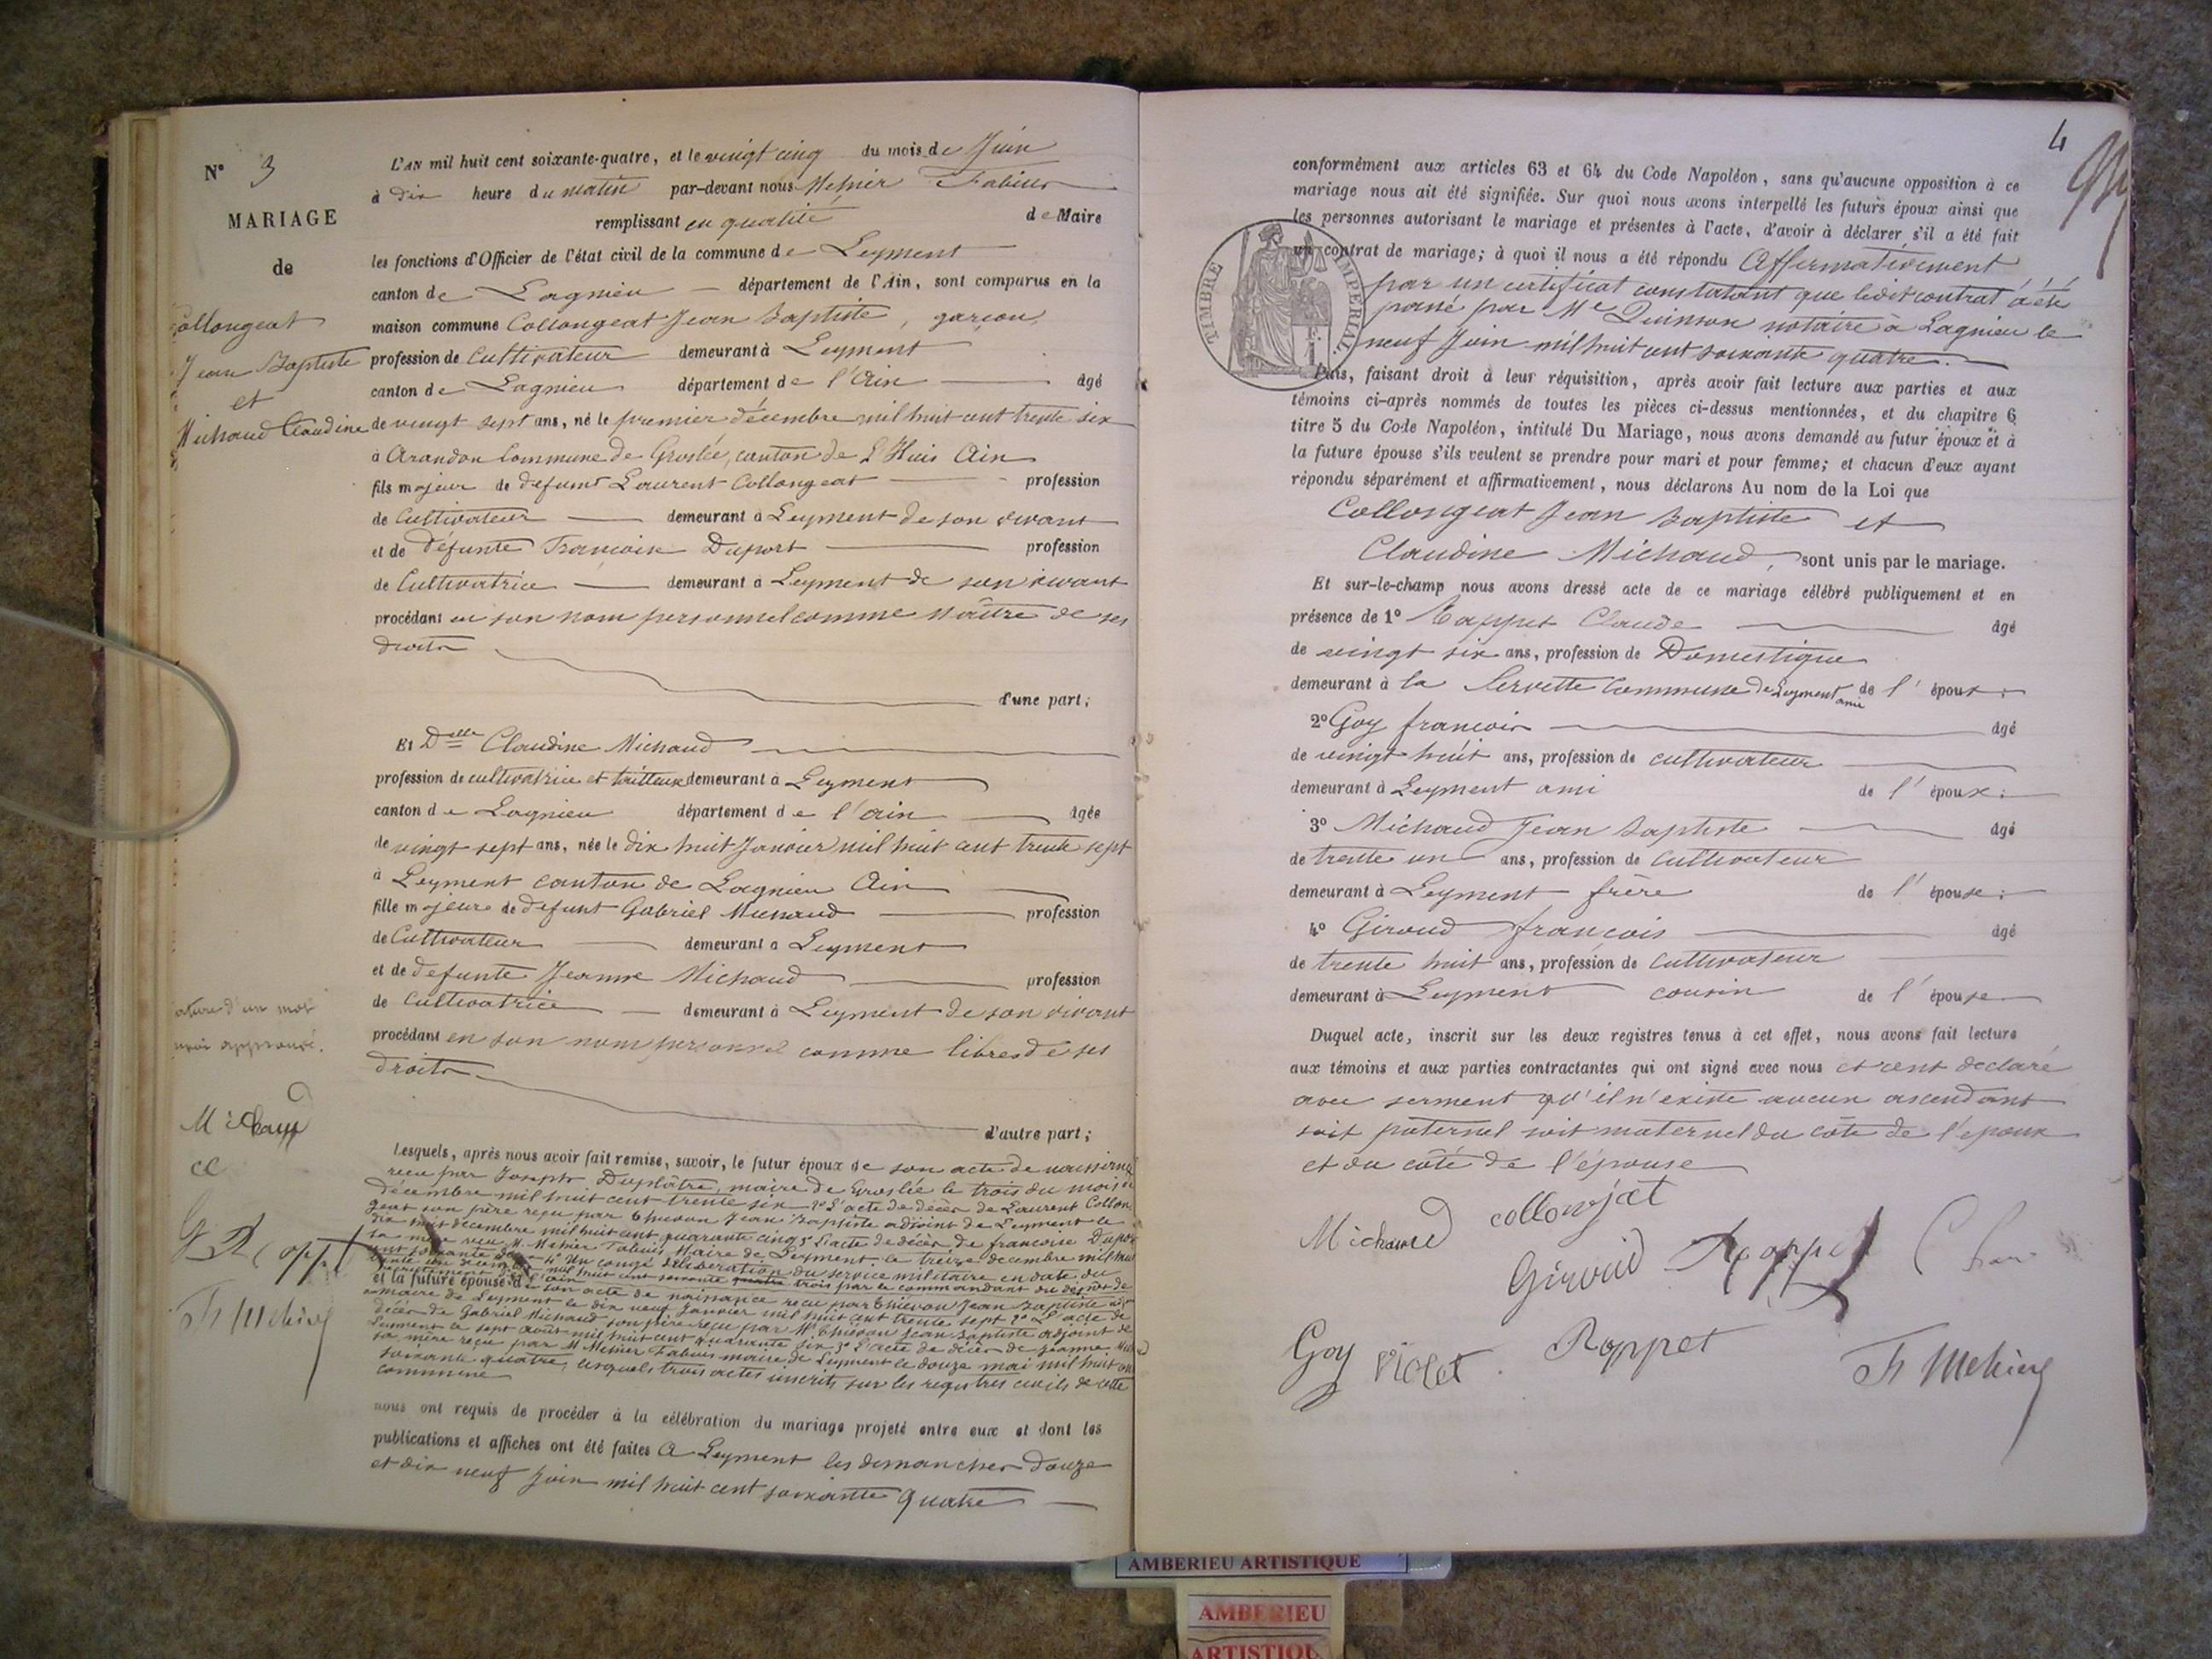 N° 3
MARIAGE
de
Collongeat
Jean Baptiste
et
Michaud Claudine
L'AN mil huit cent soixante-quatre, et le vingt cinq du mois de Juin
à dix heure du matin par-devant nous
remplissant en qualité de Maire
les fonctions d'Officier de l'état civil de la commune de Leyment
canton de Lagnieu département de l'Ain, sont comparus en la
maison commune Collongeat Jean Baptiste, garçon,
profession de Cultivateur demeurant à Leyment
canton de Lagnieu département de l'Ain âgé
de vingt sept ans, né le premier décembre mil huit cent trente six
à Arandon Commune de Groslée, canton de L'Huis Ain
fils majeur de defunt Laurent Collongeat profession
de Cultivateur demeurant à Leyment de son vivant
et de défunte Francoise Duport profession
de Cultivatrice demeurant à Leyment de son vivant
procédant en son nom personnel comme Maître de ses
droits
d'une part;
Et Delle Claudine Michaud
profession de cultivatrice et demeurant à Leyment
canton de Lagnieu département de l'Ain âgée
de vingt sept ans, née le dix huit Janvier mil huit cent trente sept
à Leyment canton de Lagnieu Ain
fille majeure de defunt Gabriel Michaud profession
de Cultivateur demeurant à Leyment
et de defunte Jeanne Michaud profession
de Cultivatrice demeurant à Leyment de son vivant
procédant en son nom personnel comme libre de ses
droits
d'autre part;
Lesquels, après nous avoir fait remise, savoir, le futur époux de son acte de naissance
reçu par Joseph Duplâtre, maire de Groslée le trois du mois de
décembre mil huit cent trente six 2° L'acte de décès de Laurent Collon
geat son père reçu par Thievon Jean Baptiste adjoint de Leyment le
dix huit decembre mil huit cent quarante cinq 3° L'acte de décès de francoise Dupor
sa mère Maire de Leyment le treize decembre mil huit
cent soixante 4° Un congé de libération du service militaire en date du
trente un mil huit cent soixante quatre trois par le commandant du dépôt de
et la future épouse de son acte de naissance reçu par Thiévon Jean Baptiste adj
maire de Leyment le dix neuf Janvier mil huit cent trente sept 2° L'acte de
décès de Gabriel Michaud son père reçu par Mr Thiévon Jean Baptiste adjoint de
Leyment le sept août mil huit cent quarante six 3° L'acte de décès de Jeanne Mich
sa mère reçu par M maire de Leyment le douze mai mil huit cent
soixante quatre, lesquels trois actes inscrits sur les registres civils de cette
commune
nous ont requis de procéder à la célébration du mariage projeté entre eux et dont les
publications et affiches ont été faites à Leyment les dimanches douze
et dix neuf Juin mil huit cent soixante quatre
ature d'un mot
approuvé.
Michaud
cc
G Roppet
4
conformément aux articles 63 et 64 du Code Napoléon, sans qu'aucune opposition à ce
mariage nous ait été signifiée. Sur quoi nous avons interpellé les futurs époux ainsi que
les personnes autorisant le mariage et présentes à l'acte, d'avoir à déclarer s'il a été fait
un contrat de mariage; à quoi il nous a été répondu Affermativement
par un certificat constatant que ledit contrat a été
passé par Me Quinson notaire à Lagnieu le
neuf Juin mil huit cent soixante quatre.
TIMBRE IMPERIAL.
Puis, faisant droit à leur réquisition, après avoir fait lecture aux parties et aux
témoins ci-après nommés de toutes les pièces ci-dessus mentionnées, et du chapitre 6
titre 5 du Code Napoléon, intitulé Du Mariage, nous avons demandé au futur époux et à
la future épouse s'ils veulent se prendre pour mari et pour femme; et chacun d'eux ayant
répondu séparément et affirmativement, nous déclarons Au nom de la Loi que
Collongeat Jean Baptiste et
Claudine Michaud, sont unis par le mariage.
Et sur-le-champ nous avons dressé acte de ce mariage célébré publiquement et en
présence de 1° Roppet Claude âgé
de vingt six ans, profession de Domestique
demeurant à la Servette Commune de Leyment ami de l'époux;
2° Goy francois âgé
de vingt huit ans, profession de cultivateur
demeurant à Leyment ami de l'époux;
3° Michaud Jean Baptiste âgé
de trente un ans, profession de Cultivateur
demeurant à Leyment frère de l'épouse;
4° Giroud françois âgé
de trente huit ans, profession de Cultivateur
demeurant à Leyment cousin de l'épouse
Duquel acte, inscrit sur les deux registres tenus à cet effet, nous avons fait lecture
aux témoins et aux parties contractantes qui ont signé avec nous et ont declaré
avec serment qu'il n'existe aucun ascendant
soit paternel soit maternel du côté de l'époux
et du côté de l'épouse
Michaud collonjat
Giroud Roppet
Goy Violet Roppet
AMBERIEU ARTISTIQUE
AMBERIEU
ARTISTIQU